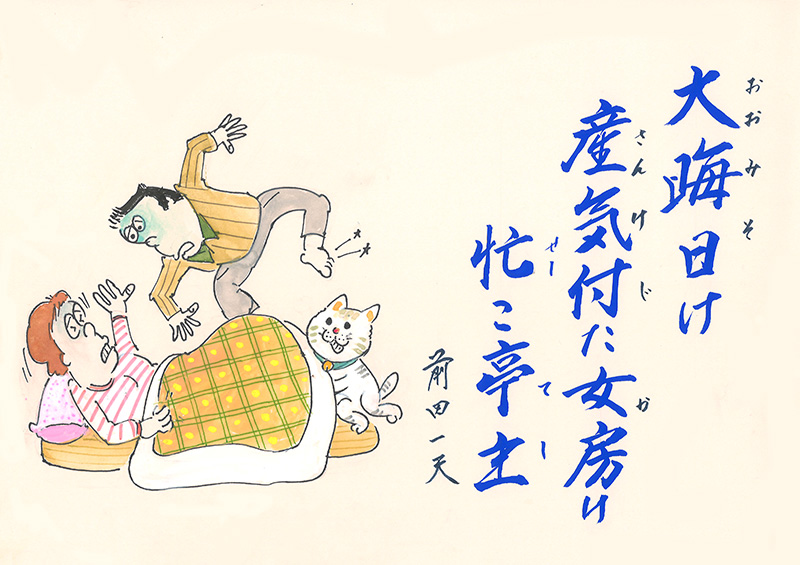 大晦日け
おおみそ
産気付た女房け
さんけじかか
忙こ亭主
せし
てし
前田一天